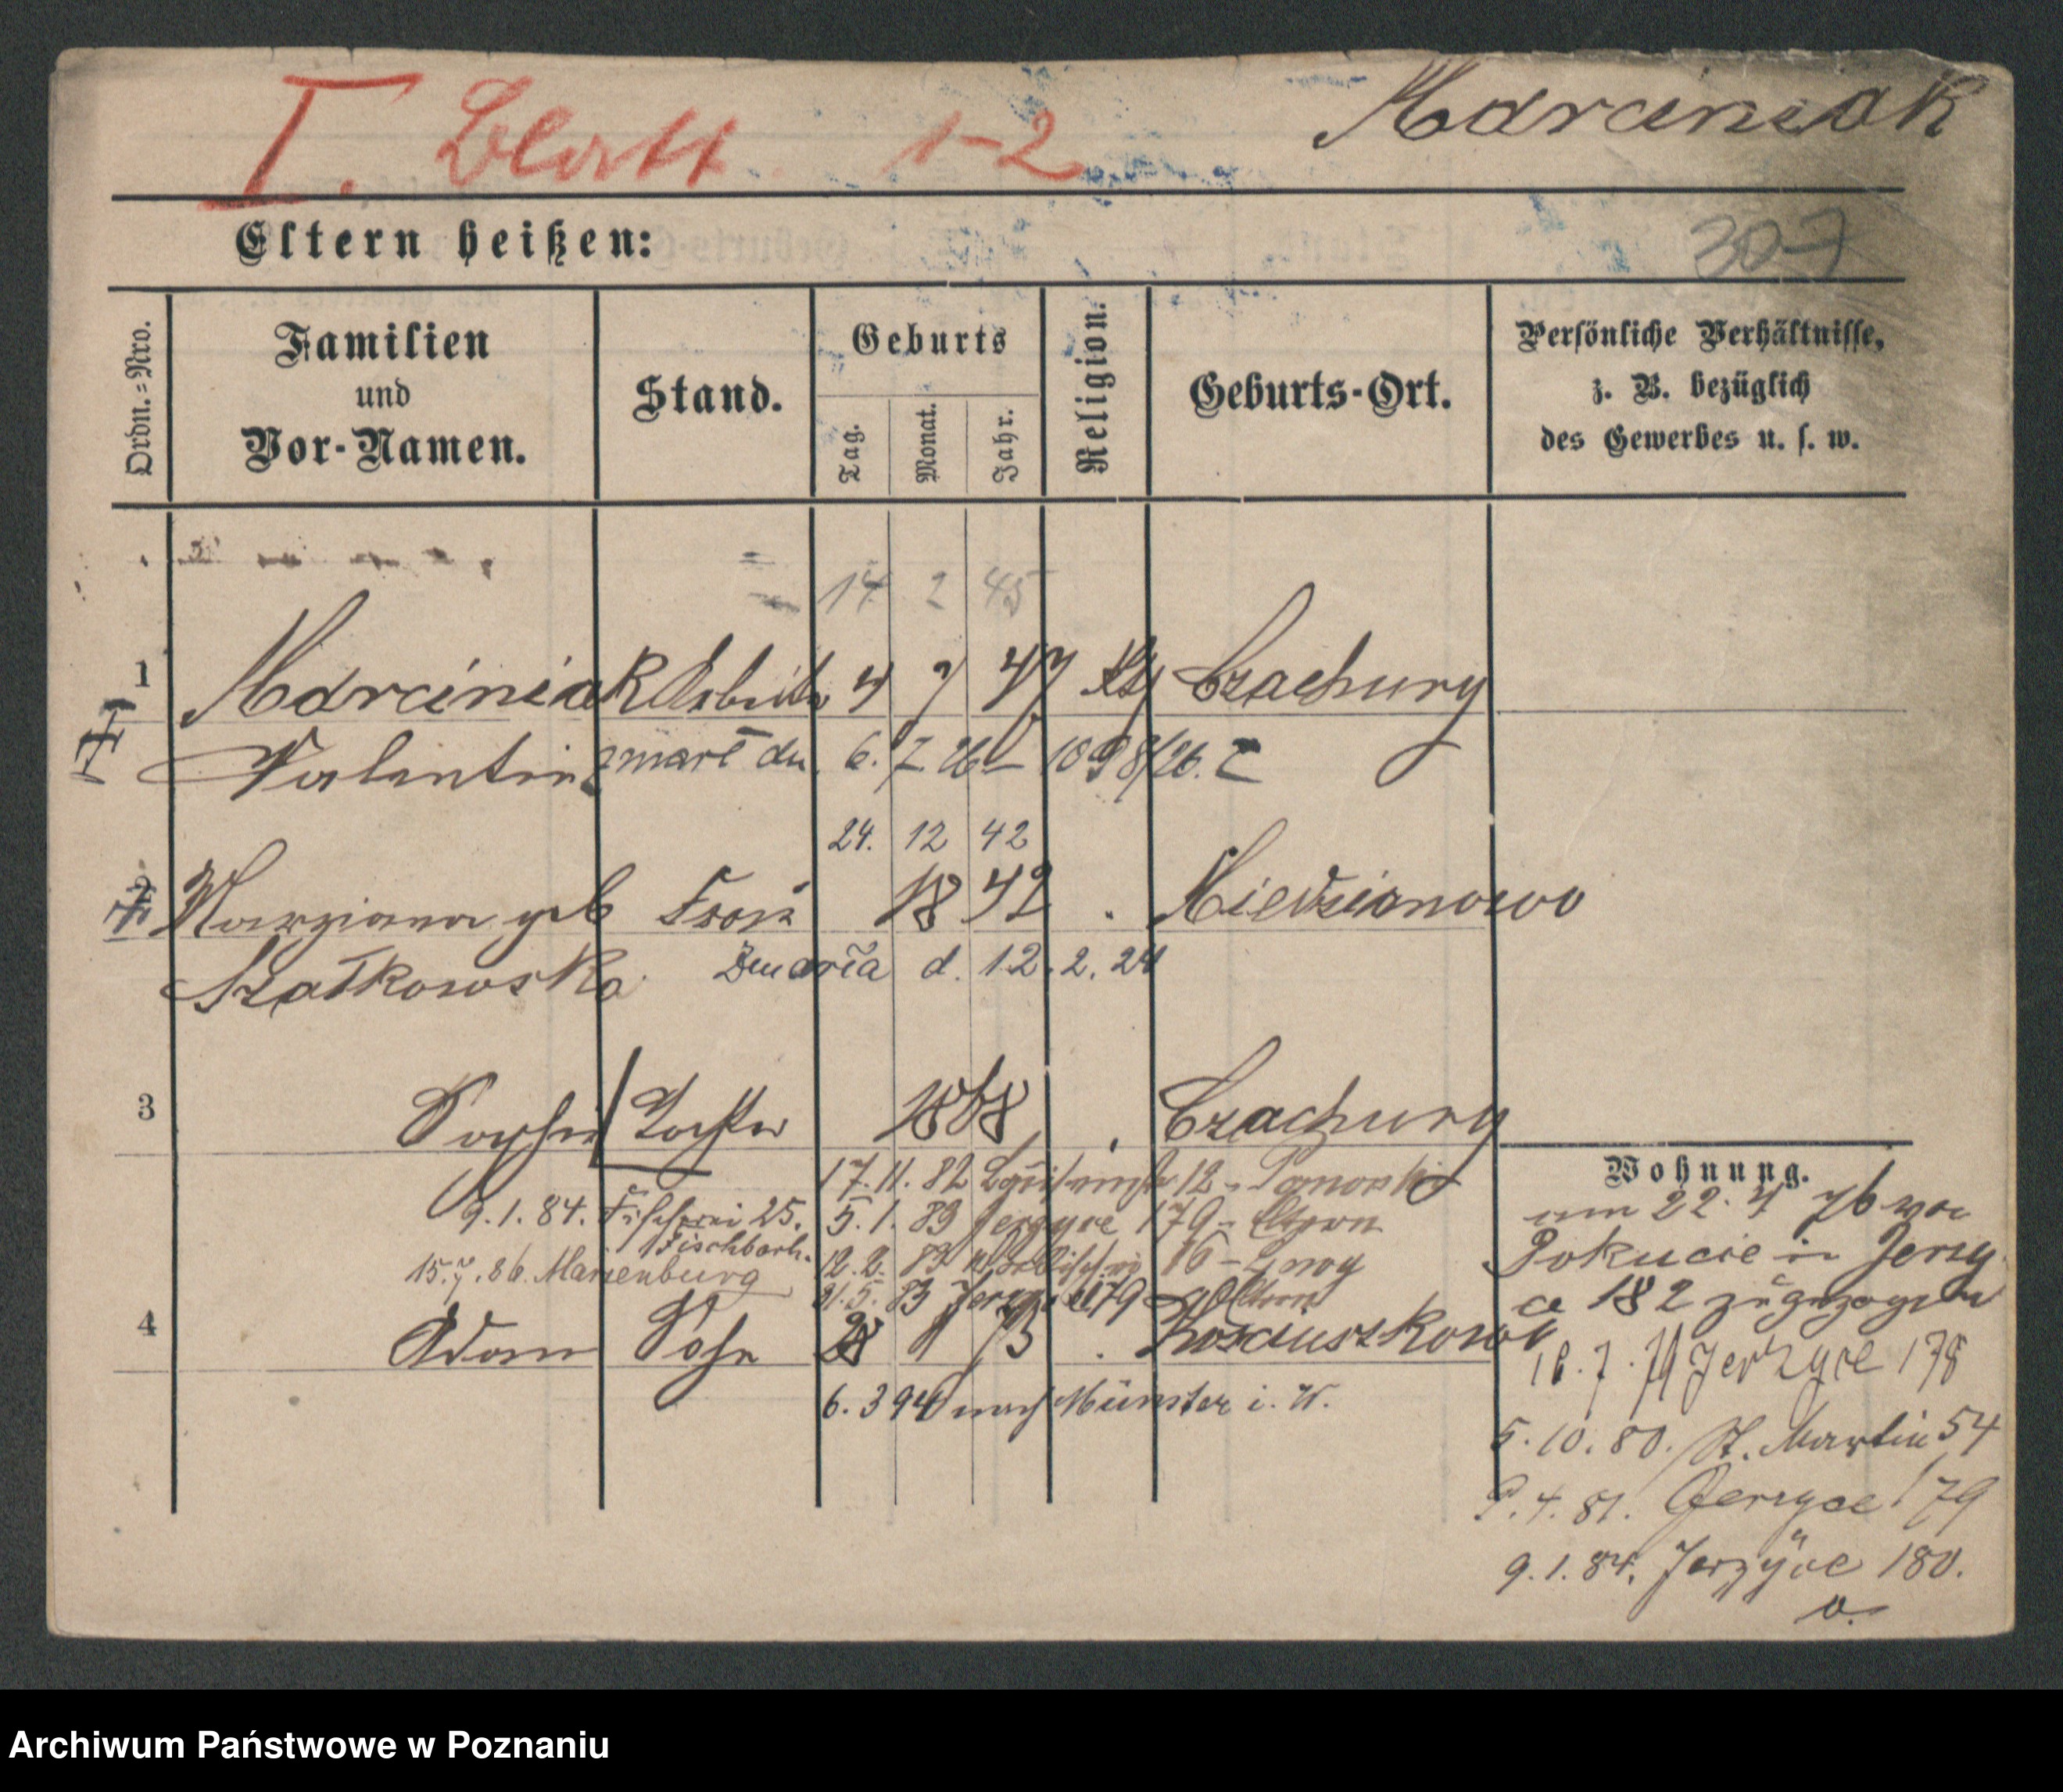 I. Blatt 1-2
Marciniak
Eltern heißen:
307
Ordn.=Nro.
Familien
und
Vor-Namen.
Stand.
Geburts
Tag.
Monat.
Jahr.
Religion.
Geburts-Ort.
Persönliche Verhältnisse,
z. B. bezüglich
des Gewerbes u. s. w.
14 2 45
1 Marciniak Arbeiter 4 7 47 Czachury
Valentin zmarł dn. 6. 7. 26 1098/26.
24. 12 42
2 Marziana geb Frau 18 42 Miedzianowo
Szatkowska
Zmarła d. 12. 2. 24
3 Sophie Tochter 1868 Czachury
17. 11. 82 12
9. 1. 84. Fischerei 25. 5. 1. 83 Jerzyce 179 Eltern
Fischbach
15. 7. 86. Marienburg 12. 2. 83 16
31. 5. 83 179 Eltern
4 Adam Sohn 1 73
6. 3 94 nach Münster i. W.
Wohnung.
am 22. 4 76 von
Pokucie in Jerzy
ce 182 zugezogen
Jerzyce 178
5. 10. 80. St. Martin 54
4. 81. Jerzyce 179
9. 1. 84. Jerzyce 180.
Archiwum Państwowe w Poznaniu